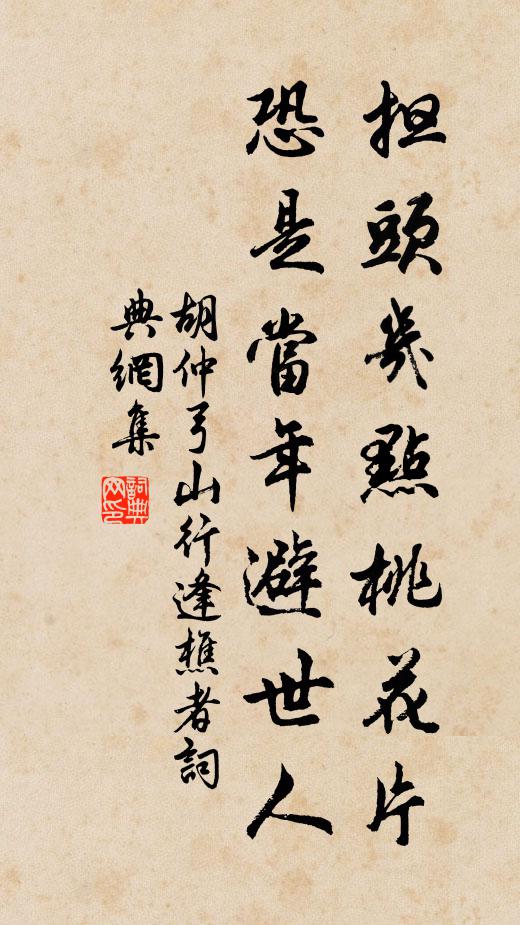 担頭幾點桃花片
恐是當年避世人
胡仲弓山行逢樵者詞
典網集
詞典网印